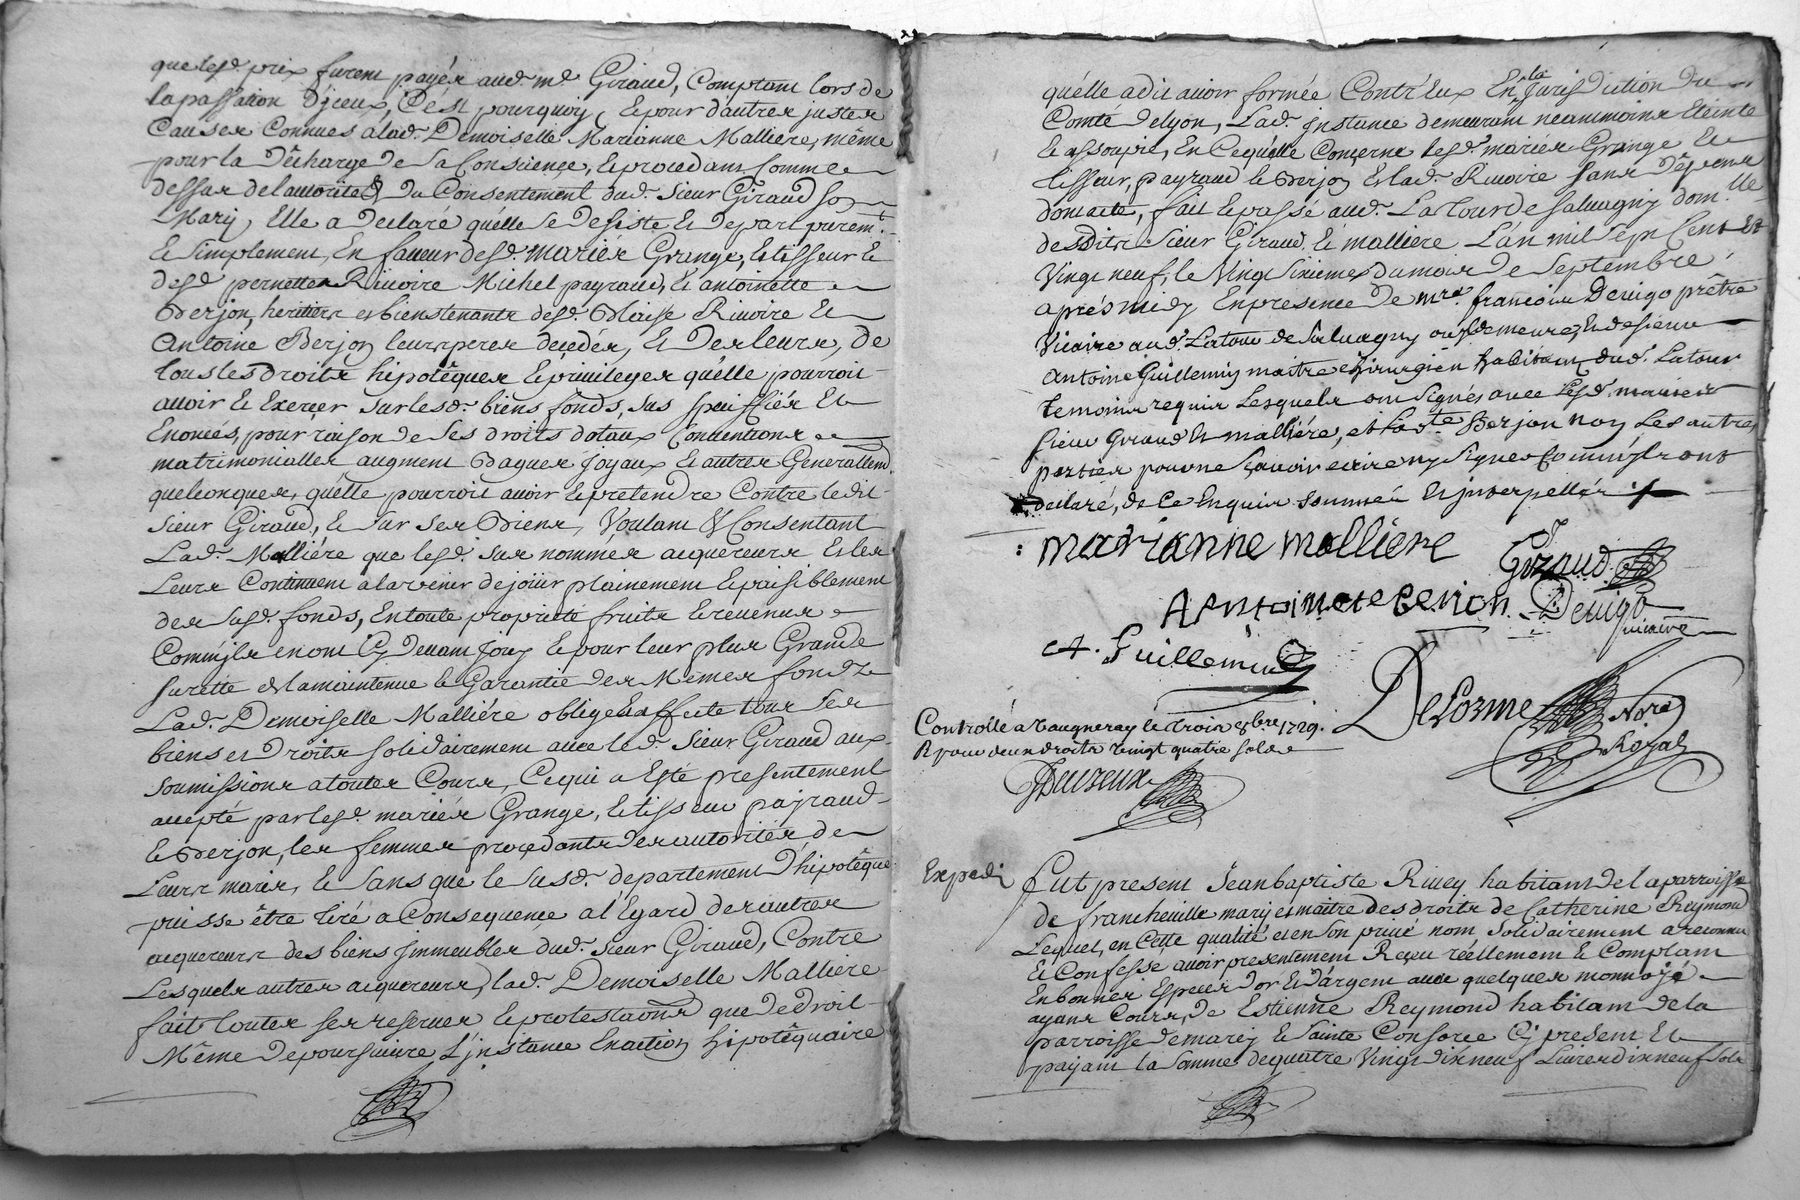 que lesd. prix furent payés aud. me. Giraud, Comptant lors de
la passation d'jceux, C'est pourquoy, & pour d'autres justes
Causes Connues a lad. Demoiselle Marianne Malliere, même
pour la décharge de sa Conscience, & procedant Comme
dessus de l'autorité & du Consentement dud. sieur Giraud son
Mary, Elle a declaré qu'elle se desiste & depart purem.t
& simplement, En faveur desd. mariés Grange, & tisseur &
desd. pernette Rivoire Michel payraud, & antoinette
Berjon, heritiers et bienstenants desd. Blaise Rivoire &
Antoine Berjon leurs peres decedés, & des leurs, de
tous les droits hipotêques & privileges qu'elle pourroit
avoir & Exerçer sur lesd. biens fonds, sus speciffiés &
Enoncés, pour raison de ses droits dotaux Conventions
matrimonialles augment Bagues Joyaux & autres Generallem.t
quelconques, qu'elle pourroit avoir & pretendre Contre ledit
sieur Giraud, & sur ses Biens, Voulant & Consentant
Lad. Malliére que lesd. sus nommés acquereurs & les
Leurs Continuent a lavenir de joüir plainement & paisiblement
des susd. fonds, En toute proprieté fruits & revenus
Comm'jls en ont Cy devant Jouy & pour leur plus Grande
surette et la maintenue & Garantie des Memes fonds
Lad. Demoiselle Malliére oblige & affecte tous ses
biens et Droits solidairement avec led. sieur Giraud aux
soumissions a toutes Cours, Ce qui a Esté presentement
accepté par lesd. mariés Grange, & tisseur payraud
& Berjon, les femmes proçedants des autorités de
Leurs maris, & sans que le susd. departement D'hipotêque
puisse être tiré a Consequençe a l'Egard des autres
acquereurs des biens jmmeubles dud. sieur Giraud, Contre
Lesquels autres acquereurs, lad. Demoiselle Malliere
fait toutes ses reserves & protestations que de droit
Même de poursuivre L'jnstance En action hipotêquaire
qu'elle a dit avoir formée Contr'Eux En la Jurisdiction du
Comté de Lyon, Lad. jnstance demeurant neanmoins Eteinte
& assoupie, En Ce qu'elle Conçerne lesd. mariés Grange &
tisseur, payraud & Berjon & lad. Rivoire sans Dépens
dont acte, fait & passé aud. La tour de salvagny dom.lle
desdits sieur Giraud & malliere L'an mil sept Cent
Vingt neuf, le Vingt sixieme du mois de septembre
apres midy En presence de mre. francois Devigo prêtre
Vicaire aud. Latour de Salvagny ou jl demeure, & de sieur
Antoine Guillemin maitre chirurgien habitant dud. Latour
temoins requis Lesquels ont signés avec Lesd. mariés
sieur Giraud & malliére, et la d.te Berjon non Les autres
parties pour ne sçavoir ecrire ny signer Comm'jls ont
declaré, de Ce Enquis sommés & jnterpellés
marianne malliere
Giraud
Antoinete berion
Devigo
vicaire
A. Guillemin
Delorme Nore
Royal
Controllé a Vaugneray le trois 8bre 1729.
R pour deux droits Vingt quatre sols
Expedi
fut present Jean baptiste Rivey habitant de la parroisse
de francheville mary et maitre des droits de Catherine Reymond
Lequel, en Cette qualité et en son privé nom solidairement a reconnu
& Confessé avoir presentement Reçeu réellement & Comptant
En bonnes Especes d'or & d'argent avec quelques monnoye
ayant Cours, de Estienne Reymond habitant de la
parroisse de marcy & Sainte Consorce Cy present &
payant la somme de quatre Vingt dix neuf Livres dix neuf sols